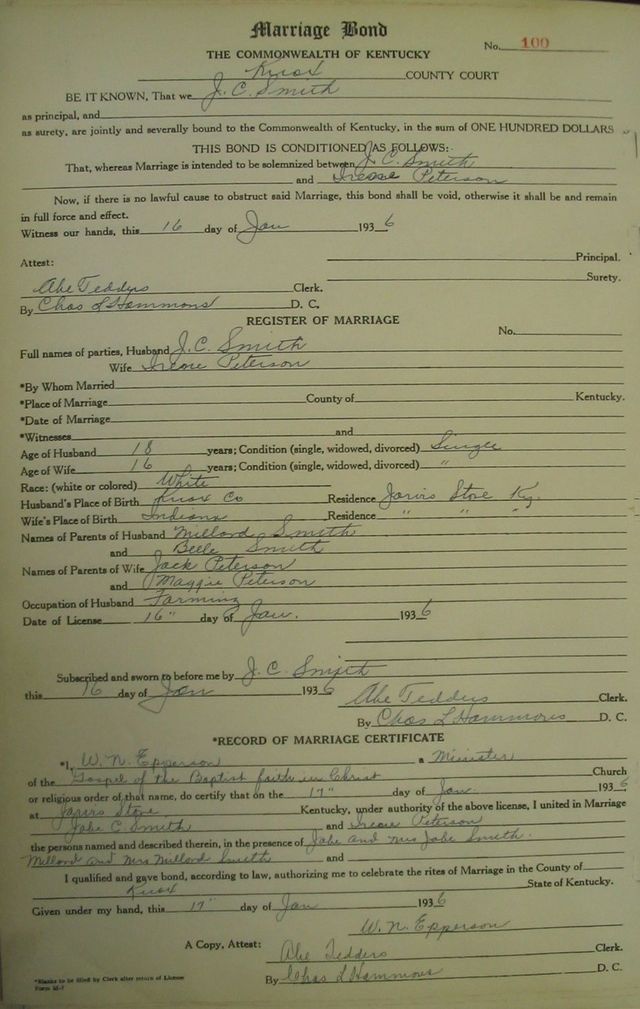 Marriage Bond
THE COMMONWEALTH OF KENTUCKY
No. 100
Knox COUNTY COURT
BE IT KNOWN, That we J. C. Smith
as principal, and
as surety, are jointly and severally bound to the Commonwealth of Kentucky, in the sum of ONE HUNDRED DOLLARS
THIS BOND IS CONDITIONED AS FOLLOWS:
That, whereas Marriage is intended to be solemnized between J. C. Smith
and Irene Peterson
Now, if there is no lawful cause to obstruct said Marriage, this bond shall be void, otherwise it shall be and remain
in full force and effect.
Witness our hands, this 16 day of Jan 1936
Principal.
Attest:
Surety.
Abe Tedders Clerk.
By Chas L Hammons D. C.
REGISTER OF MARRIAGE
No.
Full names of parties, Husband J. C. Smith
Wife Irene Peterson
*By Whom Married
*Place of Marriage County of Kentucky.
*Date of Marriage
*Witnesses and
Age of Husband 18 years; Condition (single, widowed, divorced) Single
Age of Wife 16 years; Condition (single, widowed, divorced) "
Race: (white or colored) White
Husband's Place of Birth Knox Co Residence Jarvis Store Ky.
Wife's Place of Birth Indiana Residence " " "
Names of Parents of Husband Millard Smith
and Belle Smith
Names of Parents of Wife Jack Peterson
and Maggie Peterson
Occupation of Husband Farming
Date of License 16" day of Jan. 1936
Subscribed and sworn to before me by J. C. Smith
this 16 day of Jan 1936 Abe Tedders Clerk.
By Chas L Hammons D. C.
*RECORD OF MARRIAGE CERTIFICATE
*I, W. N. Epperson a Minister
of the Gospel of the Baptist faith in Christ Church
or religious order of that name, do certify that on the 17" day of Jan. 1936
at Jarvis Store Kentucky, under authority of the above license, I united in Marriage
Jake C. Smith and Irene Peterson
the persons named and described therein, in the presence of Jake and Mrs Jake Smith.
Millard and Mrs Millard Smith and
I qualified and gave bond, according to law, authorizing me to celebrate the rites of Marriage in the County of
Knox State of Kentucky.
Given under my hand, this 17" day of Jan 1936
W. N. Epperson
A Copy, Attest: Abe Tedders Clerk.
By Chas L Hammons D. C.
*Blanks to be filled by Clerk after return of License